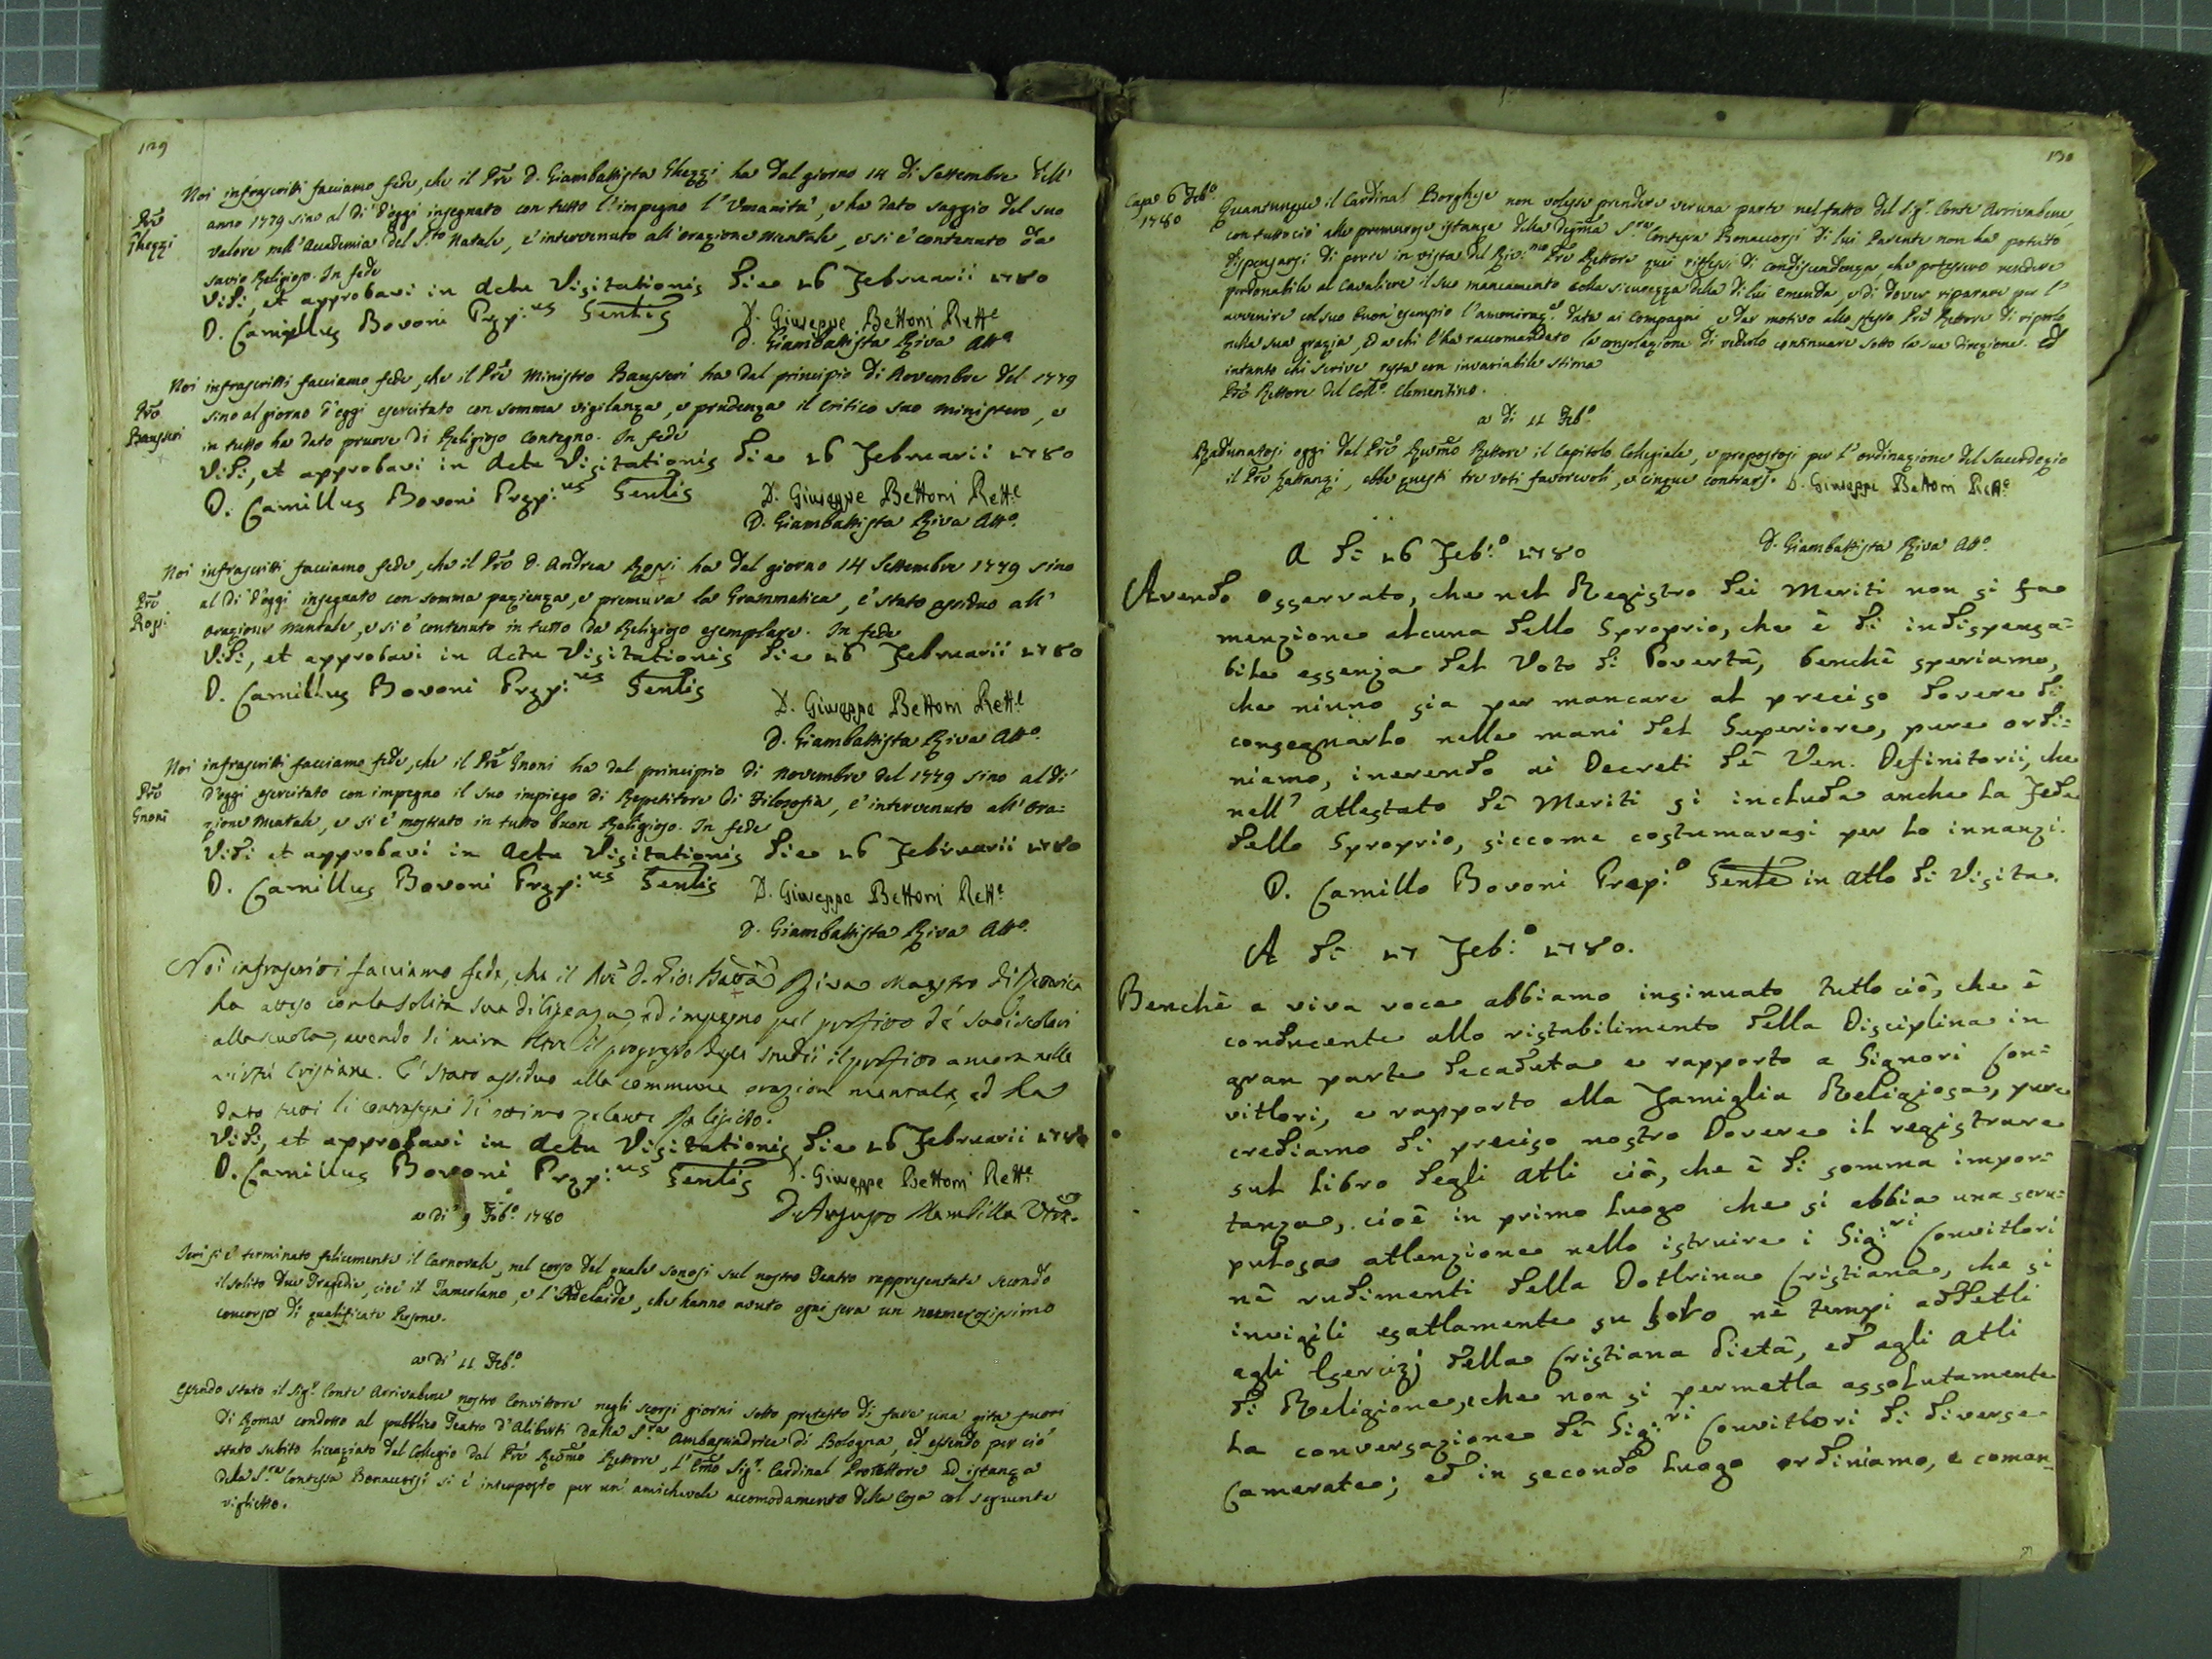 129
Noi infrascritti facciamo fede, che il Pre D. Giambattista Ghezzi ha dal giorno 14 di Settembre dell'
Pre
Ghezzi
anno 1779 sino al Di d'oggi insegnato con tutto l'impegno l'Umanita', e ha dato saggio del suo
valore nell'Accademia del S.to Natale, e' intervenuto all'orazione mentale, e si e' contenuto da
savio Religioso. In fede
Vidi, et approbavi in Actu Visitationis Die 26 Februarii 1780
D. Camillus Bovoni Prep:us Genlis
D. Giuseppe Bettoni Rett.e
D. Giambattista Riva Att.o
Noi infrascritti facciamo fede, che il Pre Ministro Bauseri ha dal principio di Novembre del 1779
Pre
Bauseri
sino al giorno d'oggi esercitato con somma vigilanza, e prudenza il critico suo ministero, e
in tutto ha dato pruove di Religioso contegno. In fede
Vidi, et approbavi in Actu Visitationis Die 26 Februarii 1780
D. Camillus Bovoni Prep:us Genlis
D. Giuseppe Bettoni Rett.e
D. Giambattista Riva Att.o
Noi infrascritti facciamo fede, che il Pre D. Andrea Rossi ha dal giorno 14 Settembre 1779 sino
Pre
Rossi
al di d'oggi insegnato con somma pazienza, e premura la Grammatica, e' stato assiduo all'
orazione mentale, e si e' contenuto in tutto da Religioso esemplare. In fede
Vidi, et approbavi in Actu Visitationis Die 26 Februarii 1780
D. Camillus Bovoni Prep:us Genlis
D. Giuseppe Bettoni Rett.e
D. Giambattista Riva Att.o
Noi infrascritti facciamo fede, che il Pre Gnoni ha dal principio di Novembre del 1779 sino al di'
Pre
Gnoni
d'oggi esercitato con impegno il suo impiego di Repetitore di Filosofia, e' intervenuto all'ora=
zione mentale, e si e' mostrato in tutto buon Religioso. In fede
Vidi et approbavi in Actu Visitationis Die 26 Februarii 1780
D. Camillus Bovoni Prep:us Genlis
D. Giuseppe Bettoni Rett.e
D. Giambattista Riva Att.o
Noi infrascritti facciamo fede, che il Pre D. Gio: Batta Riva Maestro di Rettorica
ha atteso con la solita sua diligenza, ed impegno pel profitto de' suoi scolari
alla scuola, avendo di mira oltre il progresso degli studii il profitto ancora nelle
virtù Cristiane. E' stato assiduo alla commune orazion mentale, ed ha
dato tutti li contrasegni di ottimo zelante Religioso.
Vidi, et approbavi in Actu Visitationis Die 26 Februarii 1780
D. Camillus Bovoni Prep:us Genlis
D. Giuseppe Bettoni Rett.e
a di' 9 Feb.o 1780
Ieri si e' terminato felicemente il Carnovale, nel corso del quale sonosi sul nostro Teatro rappresentate secondo
il solito due Tragedie, cioe' il Tamerlano, e l'Adelaide, che hanno avuto ogni sera un numerosissimo
concorso di qualificate Persone.
a di' 11 Feb.o
Essendo stato il Sig.r Conte Arrivabene nostro Convittore negli scorsi giorni sotto pretesto di fare una gita fuori
di Roma condotto al pubblico Teatro d'Aliberti dalla S.ra Ambasciadrice di Bologna, ed essendo per cio'
stato subito licenziato dal Collegio dal Pre Revmo Rettore, L'Emo Sig.r Cardinal Protettore ad istanza
della S.ra Contessa Bonaccorsi si e' interposto per un' amichevole accomodamento della cosa col seguente
viglietto.
130
Capo 6 Feb.o
1780
Quantunque il Cardinal Borghese non volesse prendere veruna parte nel fatto del Sig.r Conte Arrivabene,
con tutto cio' alle premurose istanze della Degma S.ra Contessa Bonaccorsi di lui Parente non ha potuto
dispensarsi di porre in vista del Riv:mo Pre Rettore quei riflessi di condiscendenza, che potessero rendere
perdonabile al Cavaliere il suo mancamento colla sicurezza della di lui emenda, e di dover riparare per l'
avvenire col suo buon'esempio l'ammiraz.e data ai Compagni e dar motivo allo stesso Pre Rettore di riporlo
nella sua grazia, ed a chi l'ha raccomandato la consolazione di vederlo continuare sotto la sua direzione. Ed
intanto chi scrive resta con invariabile stima
Pre Rettore del Coll.o Clementino.
a di 11 Feb.o
Radunatosi oggi dal Pre Revmo Rettore il Capitolo Collegiale, e propostosi per l'ordinazione del Sacerdozio
il Pre Gattanzi, ebbe questi tre voti favorevoli, e cinque contrarj. D. Giuseppe Bettoni Rett.e
D. Giambattista Riva Att.o
A Di 26 Feb:o 1780
Avendo osservato, che nel Registro dei Meriti non si fa
menzione alcuna dello Sproprio, che è di indispensa=
bile essenza del Voto di Povertà, benchè speriamo,
che niuno sia per mancare al preciso dovere di
consegnarlo nelle mani del Superiore, pure ordi=
niamo, inerendo ai Decreti dè Ven. Definitorii, che
nell' attestato dè Meriti si includa anche la Fede
dello Sproprio, siccome costumavasi per lo innanzi.
D. Camillo Bovoni Prep:o Genle in atto di Visita.
A Di 27 Feb:o 1780.
Benchè a viva voce abbiamo insinuato tutto ciò, che è
conducente allo ristabilimento della Disciplina in
gran parte decaduta e rapporto a Signori Con=
vittori, e rapporto alla Famiglia Religiosa, pure
crediamo di preciso nostro Dovere il registrare
sul Libro degli Atti ciò, che è di somma impor=
tanza, cioè in primo luogo che si abbia una scru=
pulosa attenzione nello istruire i Sig:ri Convittori
nè rudimenti della Dottrina Cristiana, che si
invigili esattamente su loro nè tempi addetti
agli Esercizj della Cristiana Pietà, ed agli Atti
di Religione, che non si permetta assolutamente
la conversazione dè Sig:ri Convittori di diverse
Camerate; ed in secondo luogo ordiniamo, e coman=